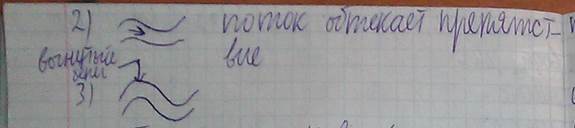 2) поток обтекает препятст-
вие
вогнутый
3)